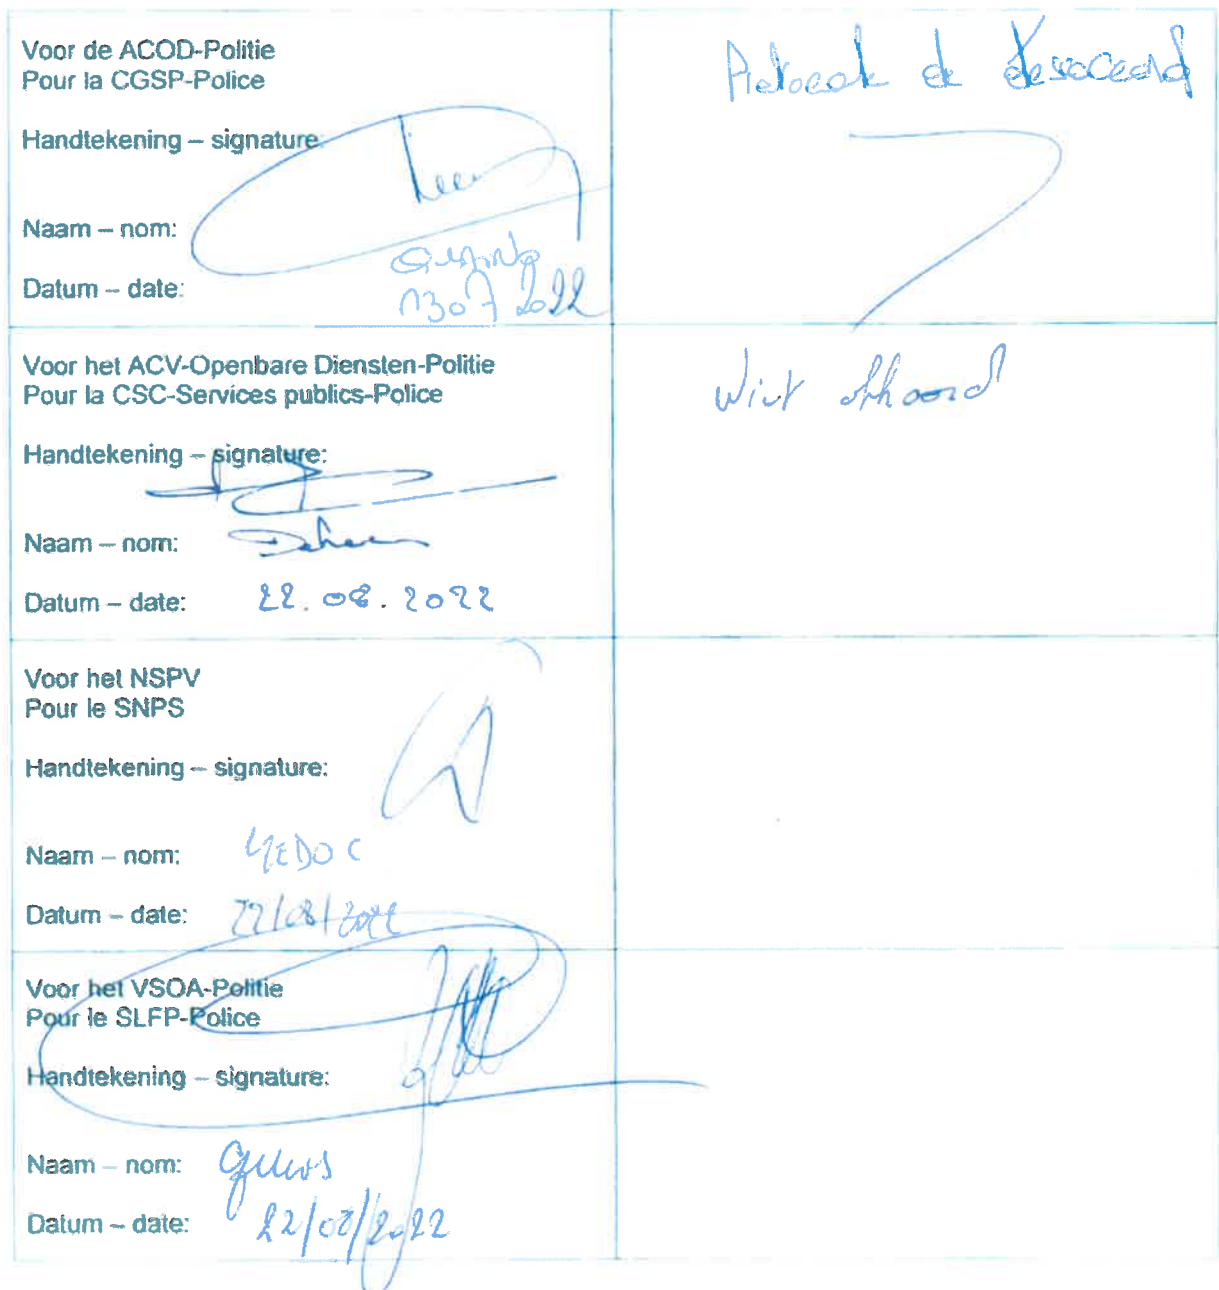 Voor de ACOD-Politie
Pour la CGSP-Police
Protocole de désaccord
Handtekening – signature:
Naam – nom:
Datum – date: 13 07 2022
Voor het ACV-Openbare Diensten-Politie
Pour la CSC-Services publics-Police
Niet akkoord
Handtekening – signature:
Naam – nom:
Datum – date: 22.08.2022
Voor het NSPV
Pour le SNPS
Handtekening – signature:
Naam – nom: MEDOC
Datum – date: 22/08/2022
Voor het VSOA-Politie
Pour le SLFP-Police
Handtekening – signature:
Naam – nom:
Datum – date: 22/08/2022